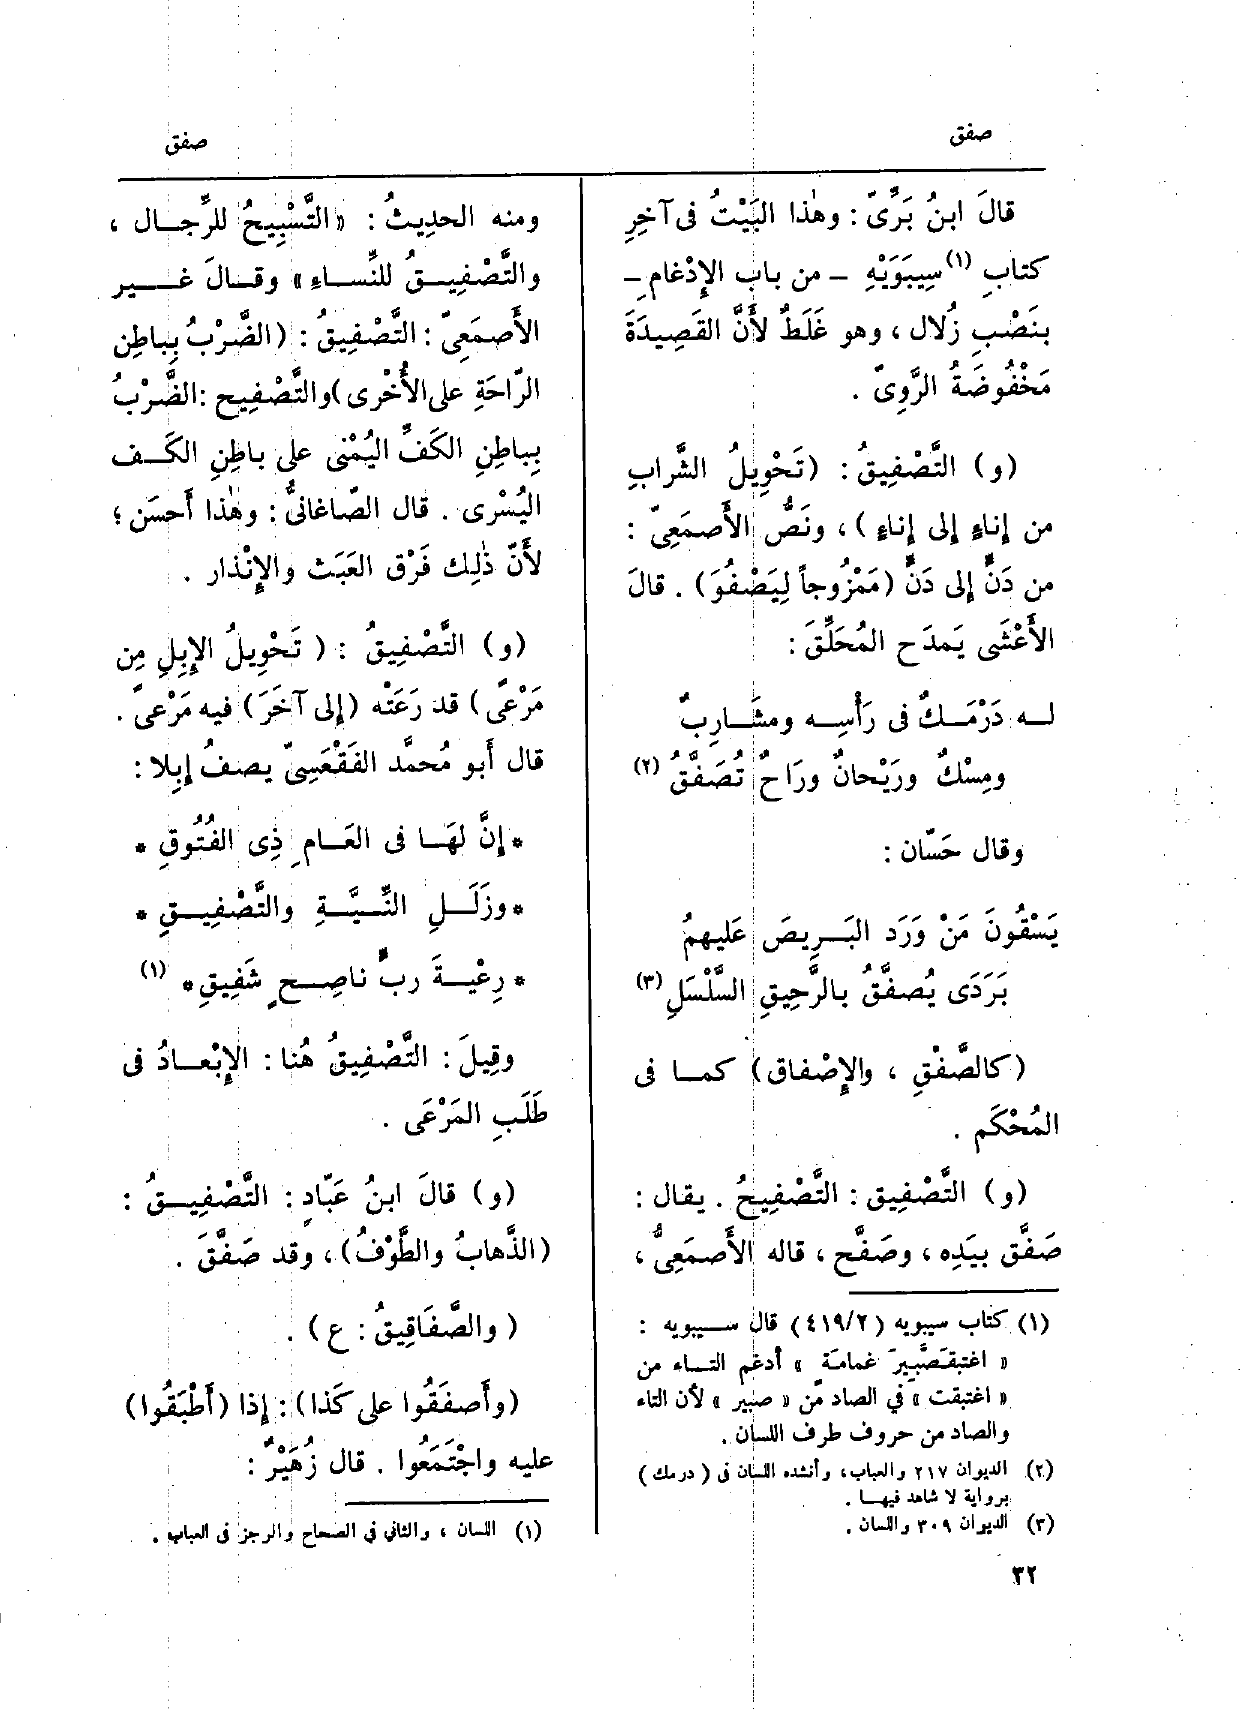 صفق
صفق
قالَ ابنُ بَرِّىّ : وهٰذا البَيْتُ فى آخِرِ
كتابِ (١) سِيبَوَيْهِ – من بابِ الإِدْغامِ –
بنَصْبِ زُلال ، وهو غَلَطٌ لأَنَّ القَصِيدَةَ
مَخْفُوضَةُ الرَّوِىّ .
(و) التَّصْفِيقُ : (تَحْوِيلُ الشَّرابِ
من إِناءٍ إلى إِناءٍ ) ، ونَصُّ الأَصمَعِىّ :
من دَنٍّ إلى دَنٍّ (مَمْزُوجاً لِيَصْفُوَ) . قالَ
الأَعْشَى يَمدَح المُحَلِّقَ :
لــه دَرْمَــكٌ فى رَأْسِــه ومشَــارِبٌ
ومِسْكٌ ورَيْحانٌ ورَاحٌ تُصَفَّقُ (٢)
وقال حَسّان :
يَسْقُونَ مَنْ وَرَد البَــرِيصَ عَليهِمُ
بَرَدَى يُصفَّقُ بالرَّحِيقِ السَّلْسَلِ (٣)
(كالصَّفْقِ ، والإِصْفاق) كمــا فى
المُحْكَم .
(و) التَّصْفِيق : التَّصْفِيحُ . يقال :
صَفَّق بيَدِه ، وصَفَّح ، قاله الأَصمَعِىُّ ،
(١) كتاب سيبويه (٤١٩/٢) قال سـيبويه :
« اغتبقـصَّبِيرَ غمامـة » أدغم التـاء من
« اغتبقت » في الصاد من « صبير » لأن التاء
والصاد من حروف طرف اللسان .
(٢) الديوان ٢١٧ والعباب، وأنشده اللسان فى ( درمك )
برواية لا شاهد فيهـا .
(٣) الديوان ٣٠٩ واللسان .
ومنه الحدِيثُ : « التَّسْبِيحُ للرِّجــال ،
والتَّصْفِيــقُ للنِّســاءِ » وقــالَ غــير
الأَصمَعِىّ : التَّصْفِيقُ : (الضَّرْبُ بِباطِنِ
الرّاحَةِ على الأُخْرى )والتَّصْفِيح :الضَّرْبُ
بِباطِنِ الكَفِّ اليُمْنى على باطِنِ الكَــف
اليُسْرى . قال الصّاغانىُّ : وهٰذا أَحسَن ؛
لأَنّ ذٰلِك فَرْق العَبَث والإِنْذار .
(و) التَّصْفِيقُ : ( تَحْوِيلُ الإِبِلِ مِن
مَرْعًى ) قد رَعَتْه (إلى آخَرَ) فيه مَرْعىً .
قال أَبو مُحمَّد الفَقْعَسِىّ يصفُ إِبِلا :
* إنَّ لهَــا فى العَــامِ ذِى الفُتُوقِ *
* وزَلَــلِ النِّــيَّــةِ والتَّصْفِيــقِ *
* رِعْيــةَ ربٍّ ناصِــحٍ شَفِيقِ * (١)
وقِيلَ : التَّصْفِيقُ هُنا : الإِبْعــادُ فى
طَلَبِ المَرْعَى .
(و) قالَ ابنُ عَبّادٍ : التَّصْفِيــقُ :
(الذَّهابُ والطَّوْفُ) ، وقد صَفَّقَ .
( والصَّفَاقِيقُ : ع ) .
(وأَصفَقُوا على كَذا) : إِذا (أَطْبَقُوا)
عليه واجْتَمَعُوا . قال زُهَيْرٌ :
(١) اللسان ، والثاني فى الصحاح والرجز فى العباب .
٣٢